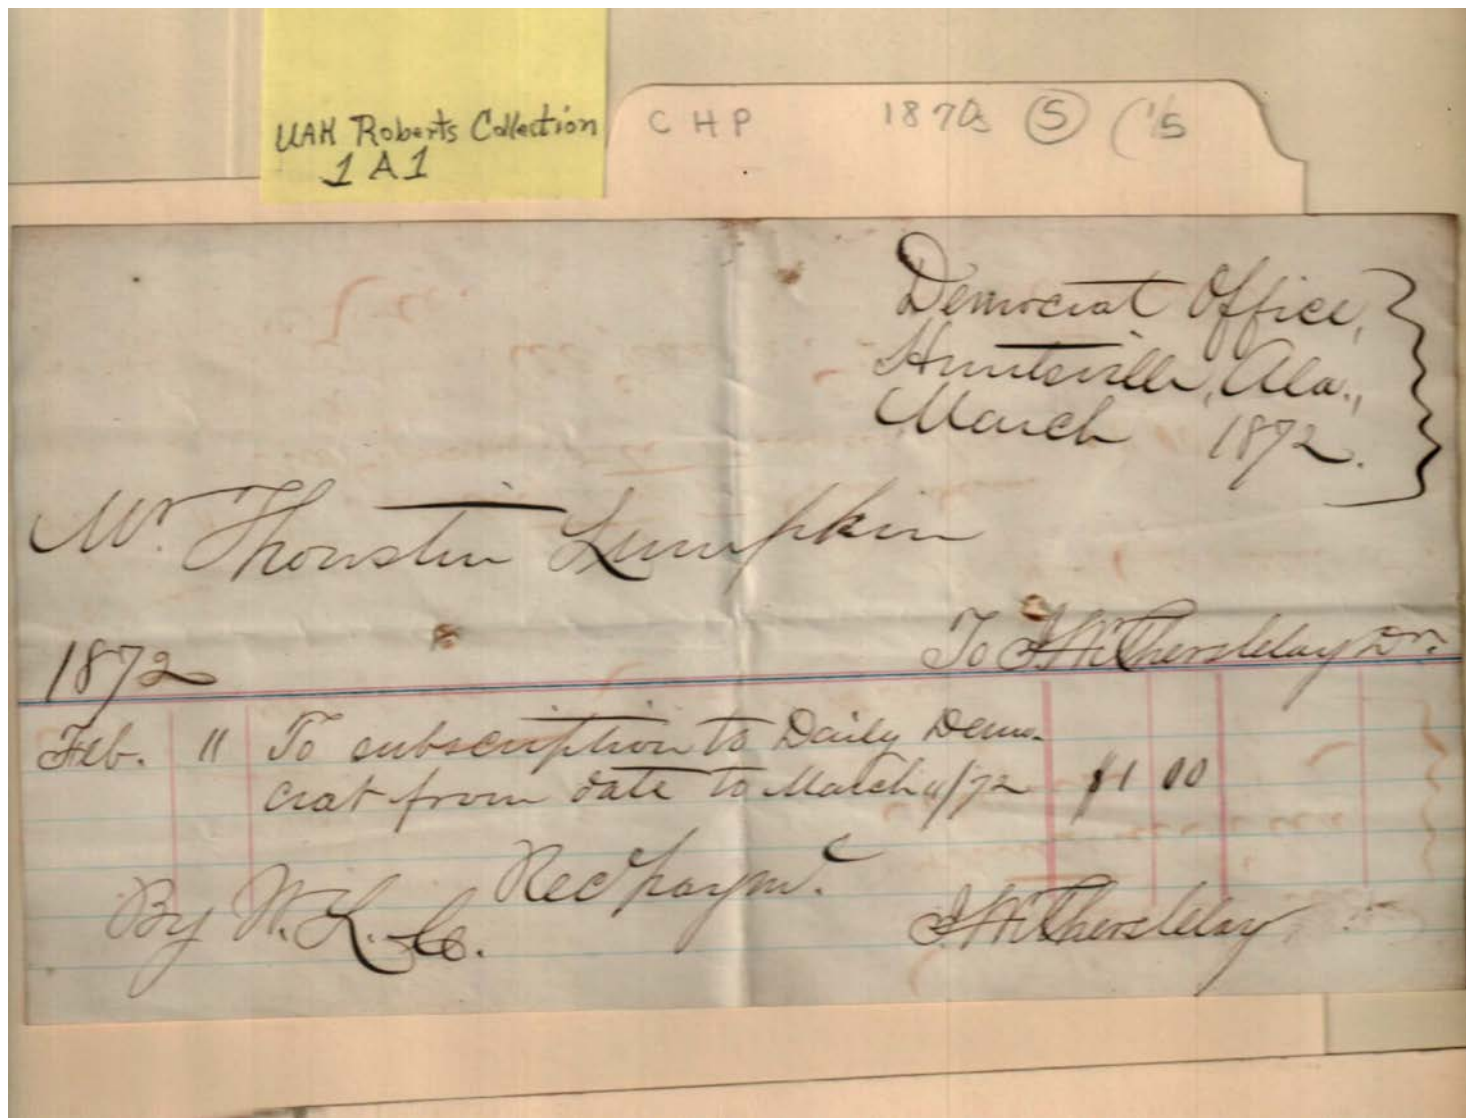 UAH Roberts Collection
1 A 1
C H P 1870s (5)
Democrat Office,
Huntsville, Ala.,
March 1872.
Mr. Thoustin Lumpkin
1872 To J. Withers Clay Dr.
Feb. 11 To subscription to Daily Demo-
crat from date to March 11/72 $1 00
Rec'd paymt.
By W. L. C.
J. Withers Clay